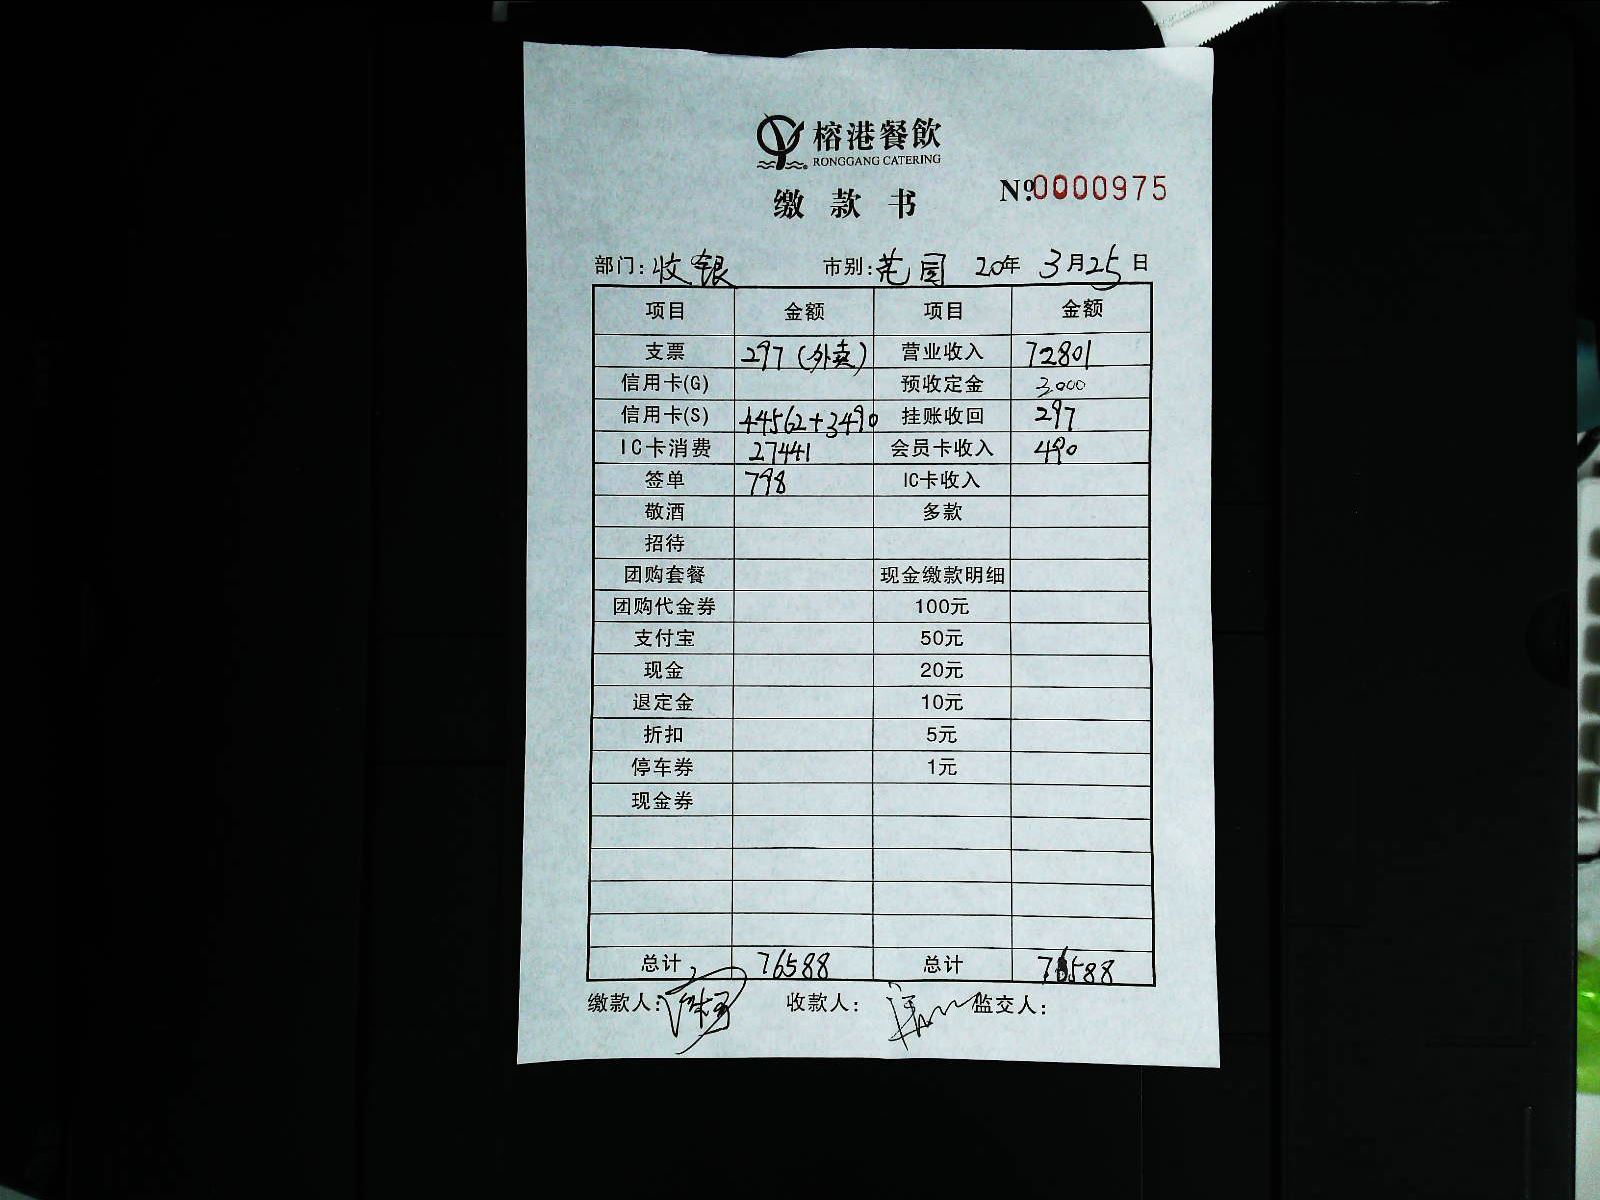 榕港餐飲
RONGGANG CATERING
缴款书
№0000975
部门：收银 市别：花园 20年 3月25日
项目 金额 项目 金额
支票 297（外卖） 营业收入 72801
信用卡(G) 预收定金 3000
信用卡(S) 44562+3490 挂账收回 297
IC卡消费 27441 会员卡收入 490
签单 798 IC卡收入
敬酒 多款
招待
团购套餐 现金缴款明细
团购代金券 100元
支付宝 50元
现金 20元
退定金 10元
折扣 5元
停车券 1元
现金券
总计 76588 总计 76588
缴款人： 收款人： 监交人：